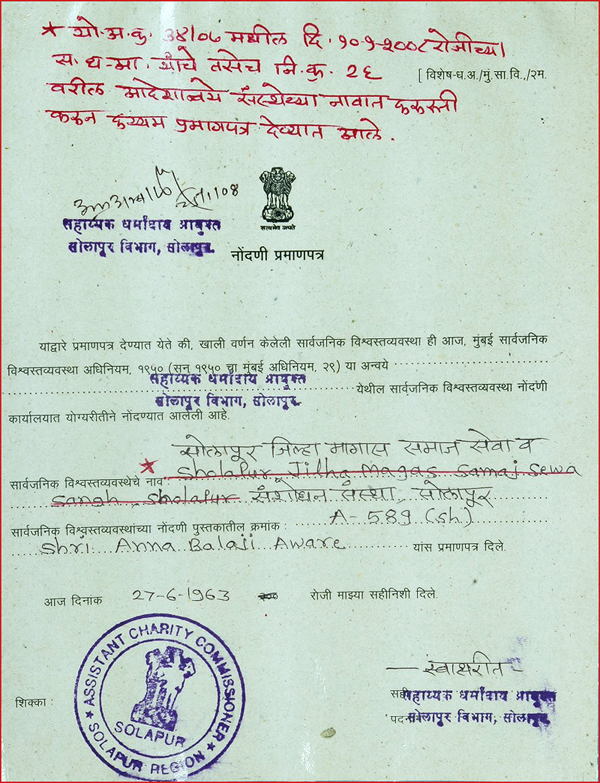 ★ चौ.अ.कृ. ३४/०७ मधील दि. १०-१-२००८ रोजीच्या
स.ध.आ. यांचे तसेच नि.कृ. २६
[ विशेष-ध.अ./मुं.सा.वि./२म.
वरील आदेशान्वये संस्थेच्या नावात दुरुस्ती
करुन दुय्यम प्रमाणपत्र देण्यात आले.
सहाय्यक धर्मादाय आयुक्त
सोलापूर विभाग, सोलापूर.
सत्यमेव जयते
नोंदणी प्रमाणपत्र
याद्वारे प्रमाणपत्र देण्यात येते की, खाली वर्णन केलेली सार्वजनिक विश्वस्तव्यवस्था ही आज, मुंबई सार्वजनिक
विश्वस्तव्यवस्था अधिनियम, १९५० (सन १९५० चा मुंबई अधिनियम, २९) या अन्वये
सहाय्यक धर्मादाय आयुक्त
सोलापूर विभाग, सोलापूर. येथील सार्वजनिक विश्वस्तव्यवस्था नोंदणी
कार्यालयात योग्यरीतीने नोंदण्यात आलेली आहे.
सोलापूर जिल्हा मागास समाज सेवा व
सार्वजनिक विश्वस्तव्यवस्थेचे नाव ★ Sholapur Jilha Magas Samaj Sewa
Sangh, Sholapur संशोधन संस्था, सोलापूर
सार्वजनिक विश्वस्तव्यवस्थांच्या नोंदणी पुस्तकातील क्रमांक : A-589 (Sh.)
Shri Anna Balaji Aware यांस प्रमाणपत्र दिले.
आज दिनांक 27-6-1963 रोजी माझ्या सहीनिशी दिले.
ASSISTANT CHARITY COMMISSIONER
SOLAPUR
SOLAPUR REGION
शिक्का :
स्वाक्षरीत
सही
सहाय्यक धर्मादाय आयुक्त
पद
सोलापूर विभाग, सोलापूर.